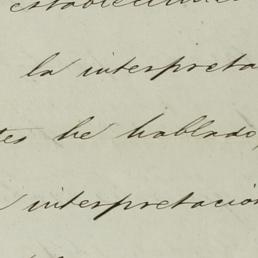 establecimien
la interpreta
tes he hablado,
interpretación